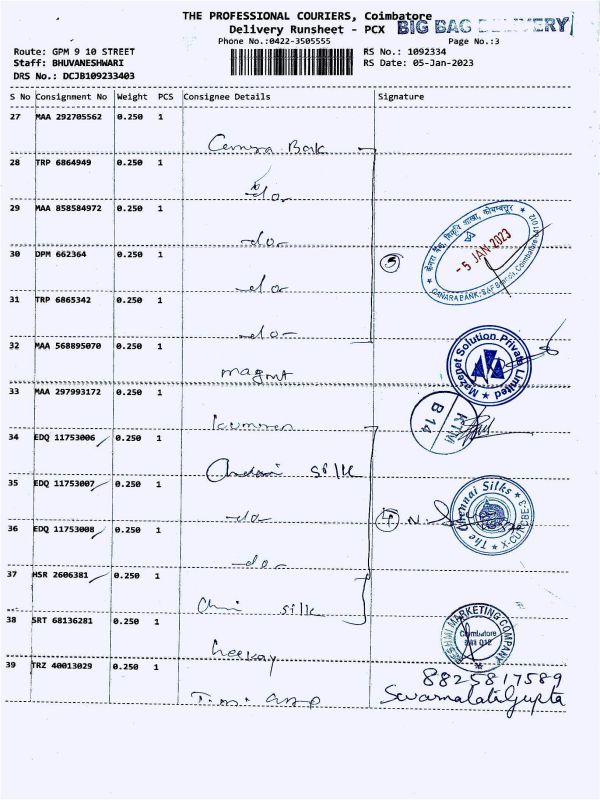 THE PROFESSIONAL COURIERS, Coimbatore
Delivery Runsheet - PCX BIG BAG DELIVERY
Phone No.:0422-3505555 Page No.:3
Route: GPM 9 10 STREET RS No.: 1092334
Staff: BHUVANESHWARI RS Date: 05-Jan-2023
DRS No.: DCJB109233403
S No Consignment No Weight PCS Consignee Details Signature
27 MAA 292705562 0.250 1
28 TRP 6864949 0.250 1
do
29 MAA 858584972 0.250 1
do
30 DPM 662364 0.250 1
do
5
केनरा बैंक
-5 JAN 2023
CANARA BANK
31 TRP 6865342 0.250 1
do
32 MAA 568895070 0.250 1
magnt
Mazenet Solution Private Limited
33 MAA 297993172 0.250 1
KTM
B 14
34 EDQ 11753006 0.250 1
silk
35 EDQ 11753007 0.250 1
do
4
The Chennai Silks
36 EDQ 11753008 0.250 1
do
37 HSR 2606381 0.250 1
silk
38 SRT 68136281 0.250 1
MARKETING COMPANY
Coimbatore
39 TRZ 40013029 0.250 1
8825817589
Swarnalati Gupta